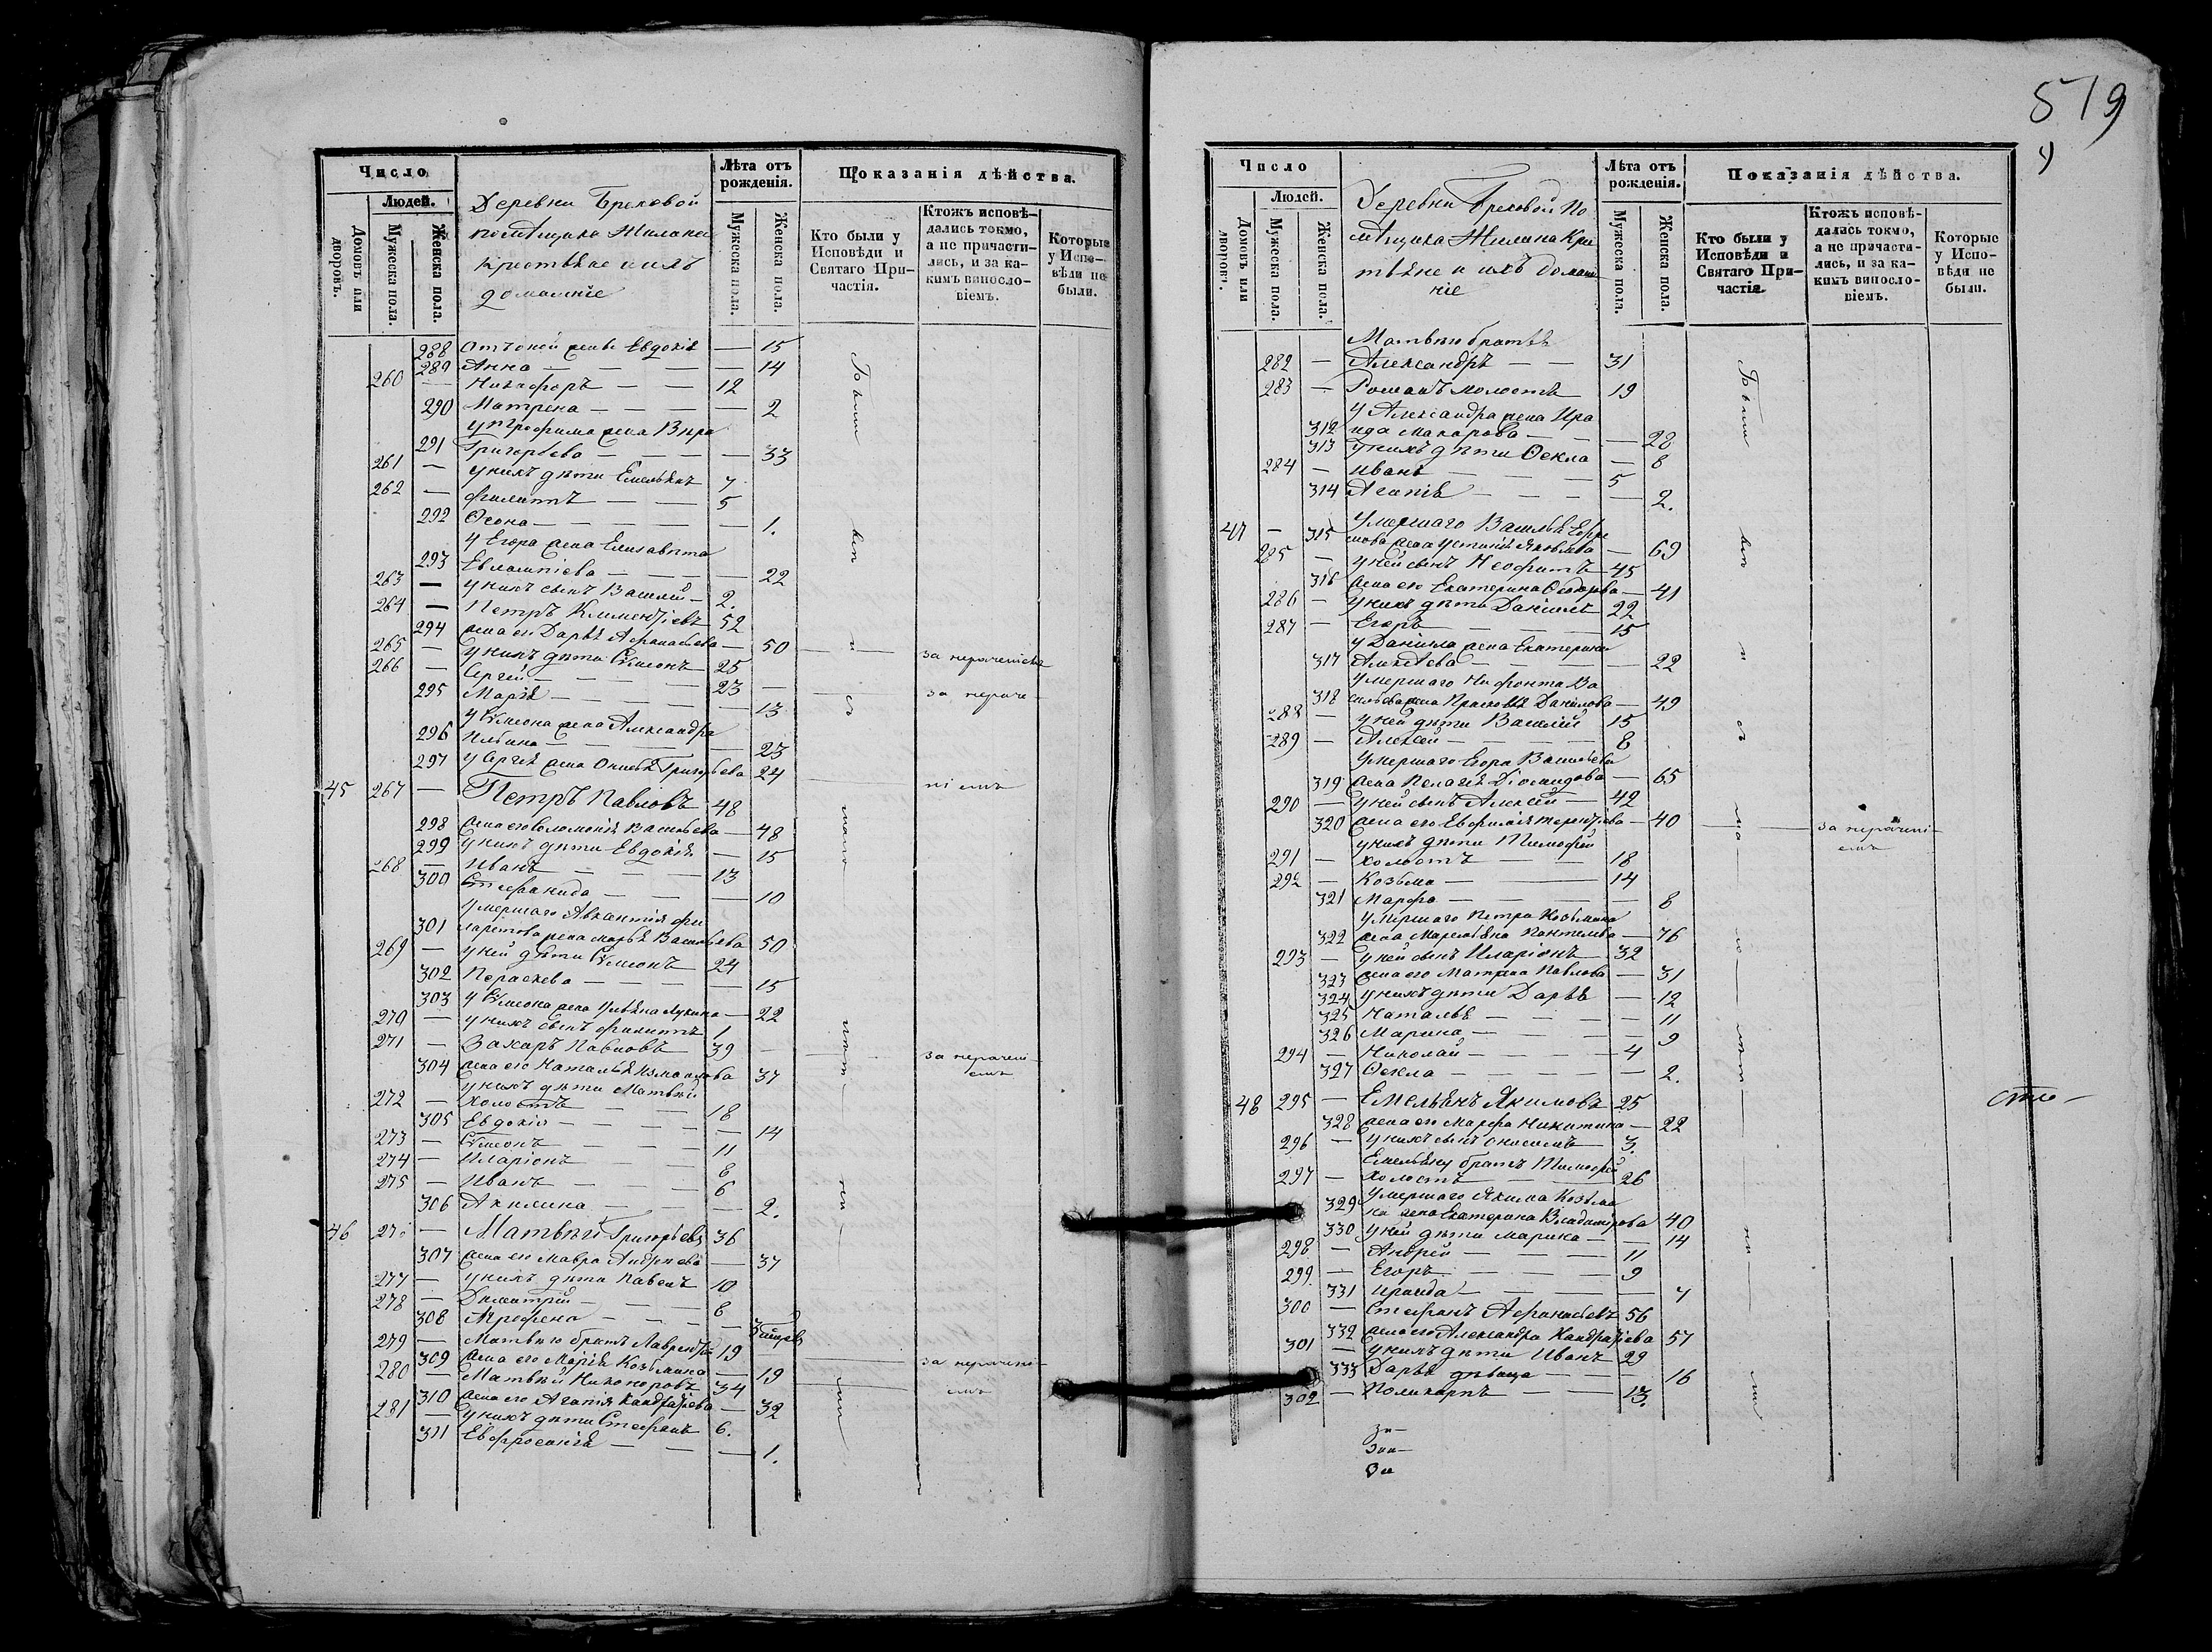 Число
Людей.
Домовъ или дворовъ.
Мужеска пола.
Женска пола.
Деревни Бреховой
помѣщика Жилина
крестьяне и ихъ
домашніе
Лѣта отъ рожденія.
Мужеска пола.
Женска пола.
Показанія дѣйства.
Кто были у Исповѣди и Святаго Причастія.
Ктожъ исповѣдались токмо, а не причастились, и за какимъ винословіемъ.
Которые у Исповѣди не были.
288 Евдокія — 15
289 Анна — 14
260 — Никифоръ — 12
290 Матрена — 2
у Трофима жена Вѣра
291 Григорьева — 33
261 — у нихъ дѣти Емельянъ 7
262 — Филиппъ — 5
292 — 1.
у Егора жена Елисавета
293 Евлампіева — 22
263 — у нихъ сынъ Василій — 2.
264 — Петръ Климентіевъ 52
294 жена его Дарья Афанасьева — 50
265 — у нихъ дѣти Сѵмеонъ 25 за нераченіемъ
266 — Сергей — 23 — за нераче-
295 Марія — 13
у Сѵмеона жена Александра
296 Ильина — 23
297 у Сергѣя жена Григорьева 24 ніемъ
45 267 — Петръ Павловъ 48
298 жена его Соломонія Васильева — 48
299 у нихъ дѣти Евдокія — 15
268 — Иванъ — 13
300 Стефанида — 10
умершаго Авксентія Фи
301 ларетова жена Марья Васильева 50
269 — у ней дѣти Сѵмеонъ 24
302 Параскева — 15
303 у Сѵмеона жена Ульяна Лукина — 22
270 — у нихъ сынъ Филиппъ 1
271 — Захаръ Павловъ 39 — за нерачені-
304 жена его Наталья Измаилова 37 емъ
у нихъ дѣти Матвѣй
272 — холостъ — 18
305 Евдокія — 14
273 — Сѵмеонъ — 11
274 — Иларіонъ — 8
275 — Иванъ — 6
306 Акилина — 2.
46 — Матвѣй Григорьевъ 36
307 жена его Мавра Андреева — 37
277 — у нихъ дѣти Павелъ 10
278 — Димитрій — 8
308 Агрефена — 3
279 — Матвѣю братъ Лаврентій 19
309 жена его Марія Козьмина — 19 за нерачені-
280 — Матвѣй Никоноровъ 34 емъ
310 жена его Агапія Кандратіева — 32
281 — у нихъ дѣти Стефанъ 6.
311 Евфросинія — 1.
Были
579
Число
Людей.
Домовъ или дворовъ.
Мужеска пола.
Женска пола.
Деревни Бреховой По
мѣщика Жилина Кре
стьяне и ихъ домаш
ніе
Лѣта отъ рожденія.
Мужеска пола.
Женска пола.
Показанія дѣйства.
Кто были у Исповѣди и Святаго Причастія.
Ктожъ исповѣдались токмо, а не причастились, и за какимъ винословіемъ.
Которые у Исповѣди не были.
Матвѣю братья
282 — Александръ — 31
283 — Романъ холостъ 19
у Александра жена Ира
312 ида Макарова — 28
313 у нихъ дѣти Ѳекла — 8
284 — Иванъ — 5
314 Агапія — 2.
умершаго Василья Ефре
47 — 315 мова жена Устинія Яковлева — 69
285 — у ней сынъ Неофитъ 45
316 жена его Екатерина — 41
286 — у нихъ дѣти Даніилъ 22
287 — Егоръ — 15
у Даніила жена Екатерина
317 Алексѣева — 22
умершаго Нифонта Ва
318 сильева жена Прасковья Данилова — 49
288 — у ней дѣти Василій 15
289 — Алексей — 8
умершаго Егора Васильева
319 жена Пелагія Діомидова — 65
290 — у ней сынъ Алексей — 42
320 жена его Евфимія Терентіева — 40 — за нерачені-
емъ
у нихъ дѣти Тимофей
291 — холостъ — 18
292 — Козьма — 14
321 Марфа — 8
умершаго Петра Козьмина
322 жена Маремьяна Пантелева — 76
293 — у ней сынъ Иларіонъ 32
323 жена его Матрена Павлова — 31
324 у нихъ дѣти Дарья — 12
325 Наталья — 11
326 Марина — 9
294 — Николай — 4
327 Ѳекла — 2.
48 295 — Емельянъ Якимовъ 25
328 жена его Марфа Никитина — 22
296 — у нихъ сынъ Онисимъ 3.
Емельяну братъ Тимофей
297 — холостъ 26
умершаго Якима Козьми
329 на жена Екатерина Владимірова 40
330 у ней дѣти Марина — 14
298 — Андрей — 11
299 — Егоръ — 9
331 Ираида — 7
300 — Стефанъ Афанасьевъ 56
332 жена его Александра Кандратіева 57
301 — у нихъ дѣти Иванъ 29
333 Дарья дѣвица — 16
302 — Поликарпъ — 13.
Были